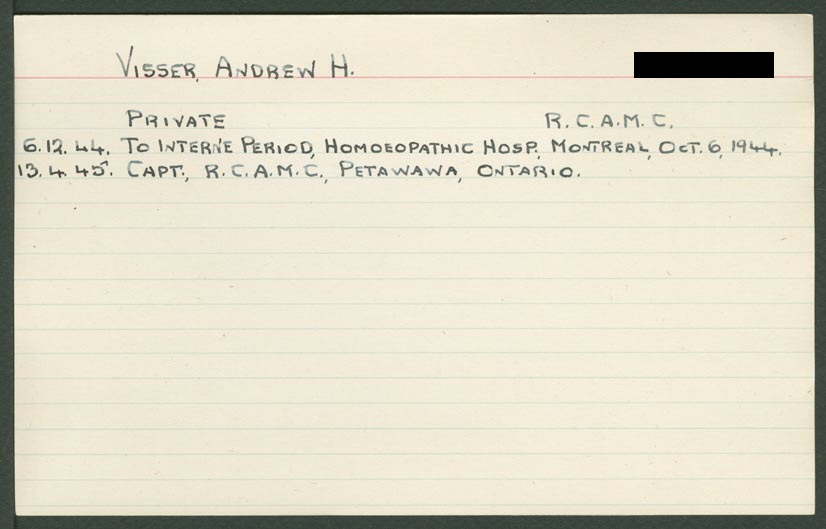 VISSER, ANDREW H.
PRIVATE R.C.A.M.C.
6.12.44. TO INTERNE PERIOD, HOMOEOPATHIC HOSP. MONTREAL, OCT. 6, 1944.
13.4.45. CAPT., R.C.A.M.C., PETAWAWA, ONTARIO.